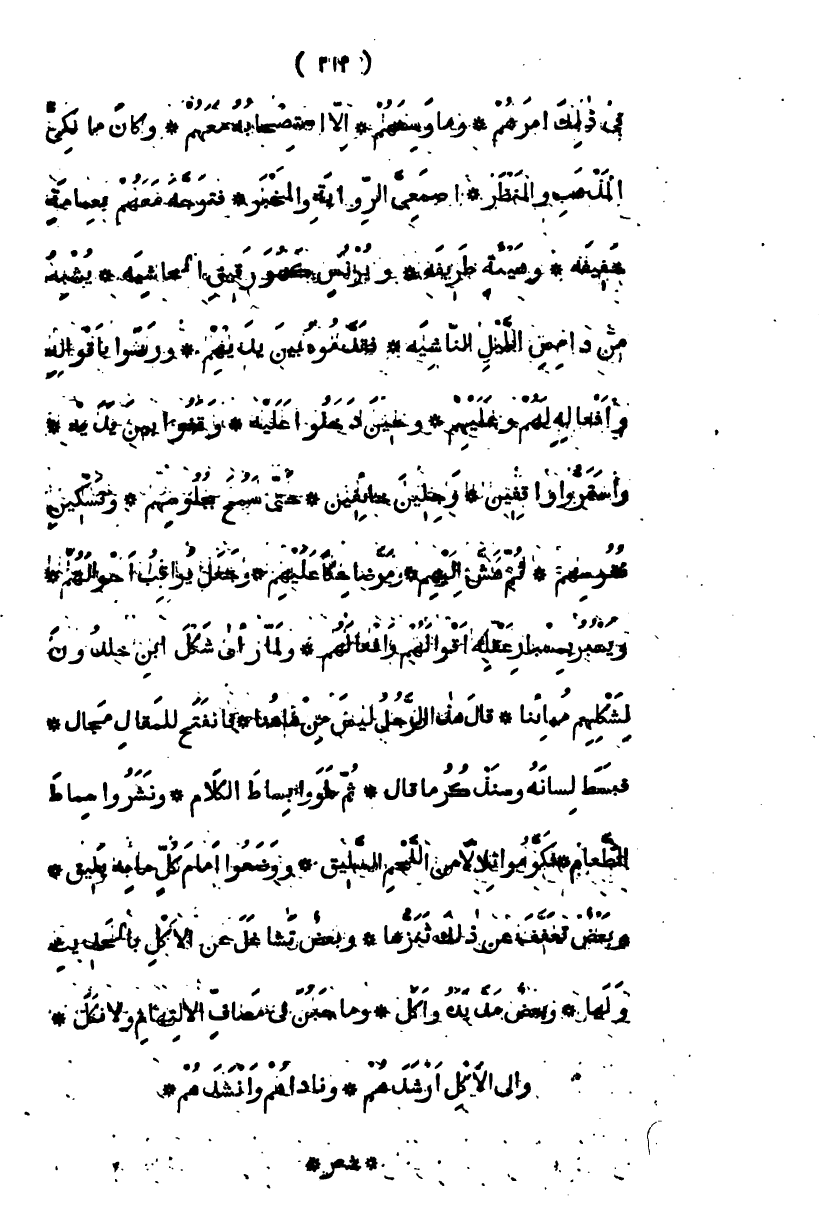 ( ٢١٣ )
فى ذلِكَ امرَهُمْ * وما وَسِعَهُمْ * اِلّا استِصْحابُهُ مَعَهُمْ * وكانَ مالِكىَّ
المَذْهَبِ والمَنْظَر * اصمَعِىَّ الرِّوايَةِ والمَخْبَر * فتَوجَّهَ مَعَهُمْ بعِمامَةٍ
خَفيفَه * وهَيْئَةٍ ظَريفَه * وبُرْنُسٍ كَهُوَ رَقيقِ الحاشِيَه * يُشْبِهُ
مِن داجِى اللَّيْلِ النّاشِيَه * فقَدَّمُوهُ بَينَ يدَيْهِم * ورَضُوا باَقْوالِهِ
وأَفْعالِهِ لَهُمْ وعَلَيْهِمْ * وحينَ دَخَلُوا عَلَيْه * وَقَفُوا بينَ يَدَيْه *
واسْتَمَرُّوا واقِفين * وَجِلينَ خائِفين * حتّى سَمَحَ بجُلُوسِهِم * وتَسْكينِ
نُفُوسِهِم * ثُمّ هَشَّ اِلَيْهِم * ومَرَّ ضاحِكاً عَلَيْهِم * وجَعَلَ يُراقِبُ اَحْوالَهُم *
ويَسْبُر بمِسْبارِ عَقْلِهِ اَقْوالَهُمْ وَافْعالَهُم * ولَمّا رَأى شَكْلَ ابنِ خلدُونَ
لِشَكْلِهِم مُبايِنا * قالَ هذا الرَّجُلُ لَيسَ مِنْ هاهُنا * فانفَتَح للمَقالِ مَجال *
فبَسَطَ لِسانَهُ وسنَذْكُرُ ما قال * ثُمّ طَوَوا بِساطَ الكَلام * ونَشَرُوا سِماطَ
الطَّعام * فكَوَّمُوا تِلالاً من اللَّحْمِ السَّليق * ووَضَعُوا اَمامَ كُلٍّ ما بِه يَليق *
فبَعْضٌ تَعَفَّفَ عَن ذلكَ تَنَزُّها * وبعضٌ تَشاغَلَ عَن الاَكْلِ بالحَديثِ
وَلَها * وبَعضٌ مَدَّ يَدَهُ واَكَل * وما جَبُنَ فى مَصافِّ الالتِهامِ ولا نَكَل *
والى الاَكْلِ اَرْشَدَهُم * وناداهُمْ وَاَنْشَدَهُم *
* شعر *